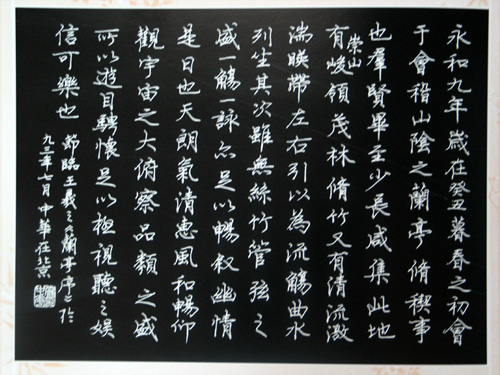 永和九年歲在癸丑暮春之初會
于會稽山陰之蘭亭脩稧事
也羣賢畢至少長咸集此地
有崇山峻領茂林脩竹又有清流激
湍暎帶左右引以為流觴曲水
列坐其次雖無絲竹管弦之
盛一觴一詠亦足以暢敘幽情
是日也天朗氣清惠風和暢仰
觀宇宙之大俯察品類之盛
所以遊目騁懷足以極視聽之娛
信可樂也
節臨王羲之蘭亭序於
九三年七月中華在北京